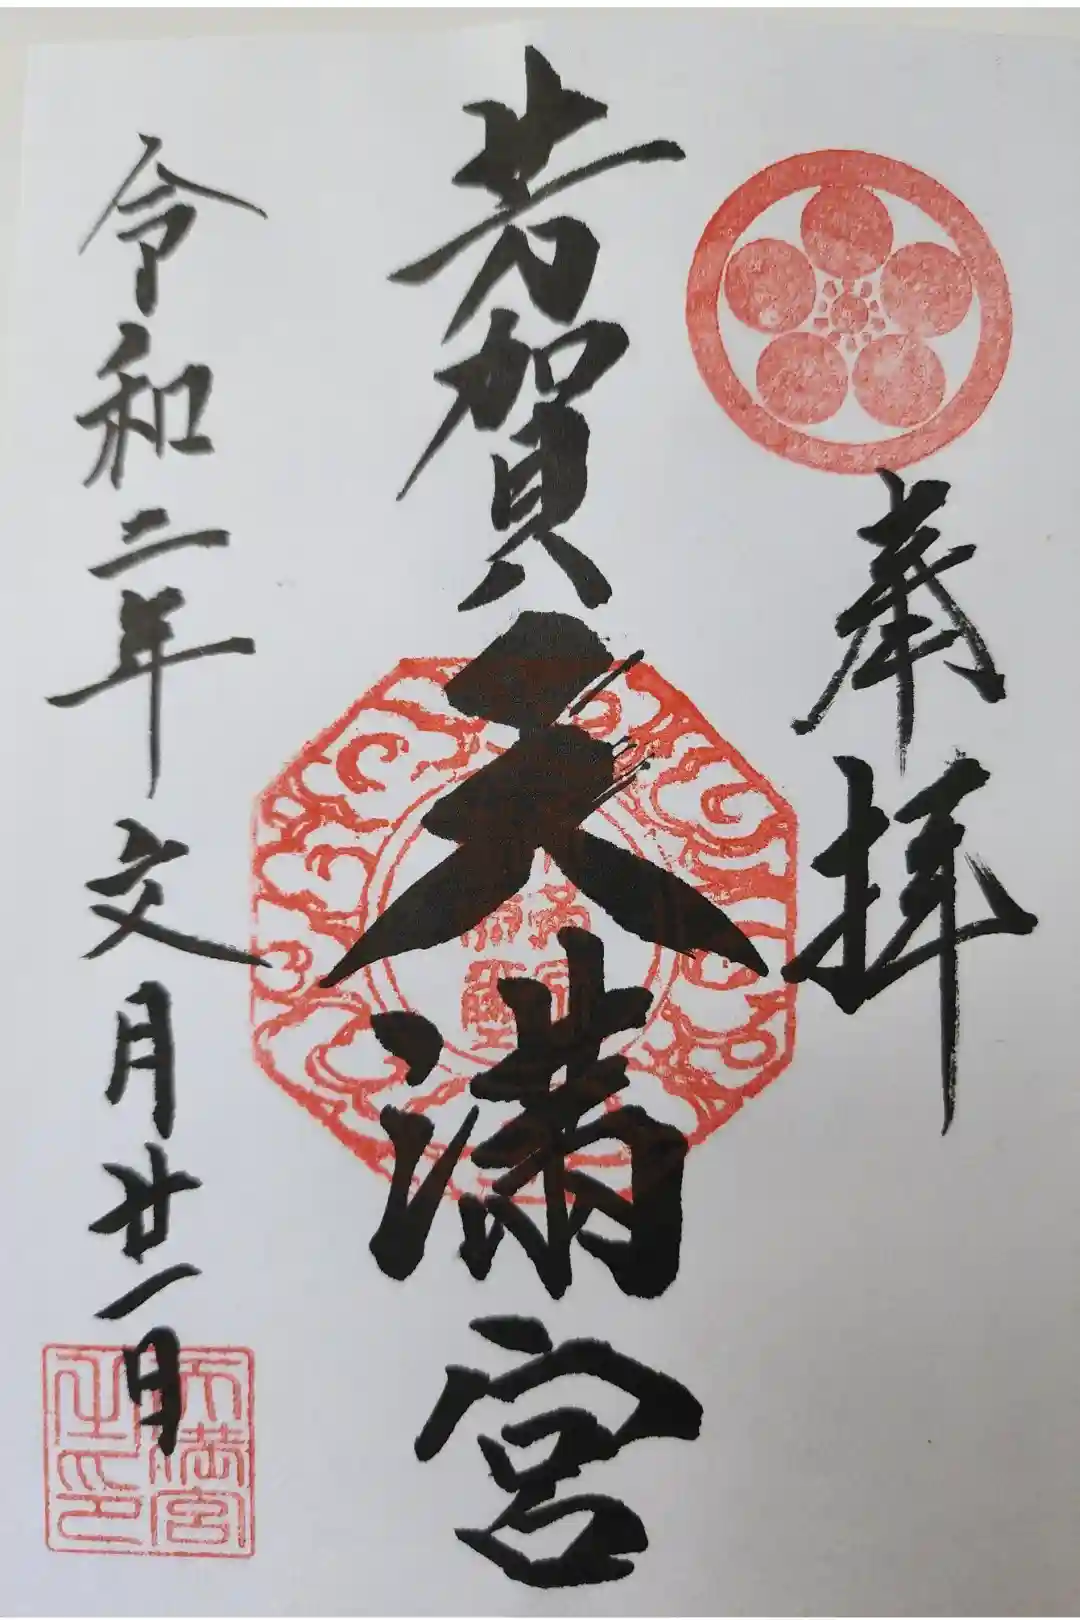 奉拝
芳賀天満宮
令和二年文月廿一日
天満宮
之印